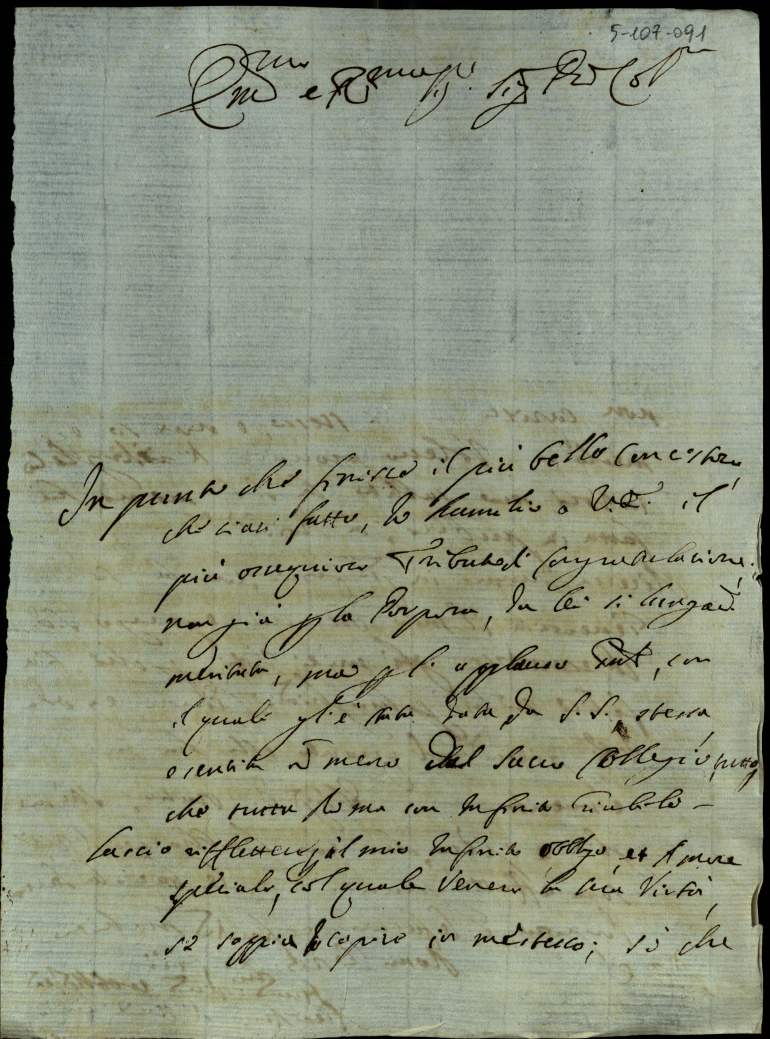 5-107-091
Em.mo e R.mo Sig. Sig. P.ron Col.mo
In punto che finisce il più bello Concistoro,
che siasi fatto, Io humilio a V.E. il
più ossequioso Tributo di Congratulazione,
non già p. la Porpora, da lei si lungam.
meritata, ma p. l'applauso, con
il quale gl'è stata data da S. S. stessa,
meno del Sacro Collegio,
che tutta Roma con infinito Giubilo
Lascio riflettere il mio infinito obbligo, et Amore
speciale, col quale venero la sua Virtù,
se sappia capire in me stesso; sì che